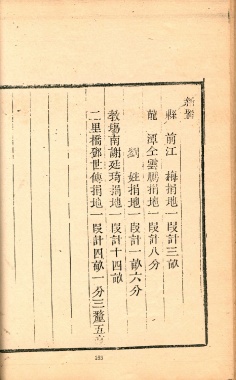 新案
縣前江 梅捐地一段計三畝
龍潭仝雲鵬捐地一段計八分
劉 姓捐地一段計一畝六分
教場南謝廷琦捐地一段計十四畝
二里橋鄧世傳捐地一段計四畝一分三釐五